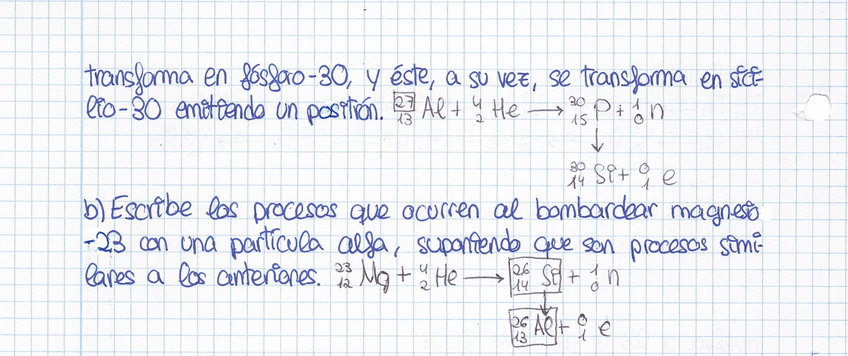 transforma en fósforo-30, y éste, a su vez, se transforma en sili-
cio-30 emitiendo un positrón. ²⁷₁₃Al + ⁴₂He → ³⁰₁₅P + ¹₀n
↓
³⁰₁₄Si + ⁰₁e
b) Escribe los procesos que ocurren al bombardear magnesio
-23 con una partícula alfa, suponiendo que son procesos simi-
lares a los anteriores. ²³₁₂Mg + ⁴₂He → ²⁶₁₄Si + ¹₀n
↓
²⁶₁₃Al + ⁰₁e